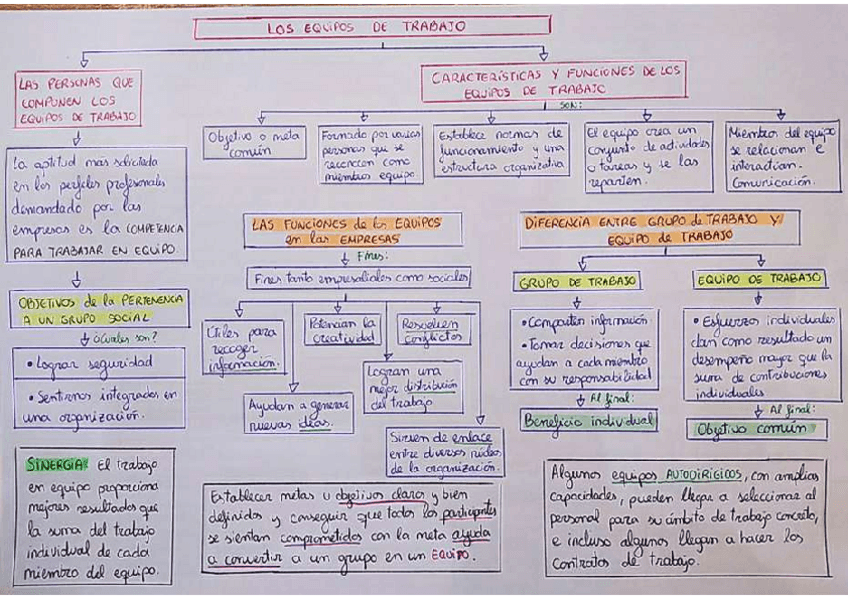 LOS EQUIPOS DE TRABAJO
LAS PERSONAS QUE
COMPONEN LOS
EQUIPOS DE TRABAJO
La aptitud más solicitada
en los perfiles profesionales
demandado por las
empresas es la COMPETENCIA
PARA TRABAJAR EN EQUIPO
OBJETIVOS de la PERTENENCIA
A UN GRUPO SOCIAL
¿Cuáles son?
• Lograr seguridad
• Sentirnos integrados en
una organización.
SINERGIA: El trabajo
en equipo proporciona
mejores resultados que
la suma del trabajo
individual de cada
miembro del equipo.
CARACTERÍSTICAS Y FUNCIONES DE LOS
EQUIPOS DE TRABAJO
SON:
Objetivo o meta
común
Formado por varias
personas que se
reconocen como
miembros equipo.
Establece normas de
funcionamiento y una
estructura organizativa
El equipo crea un
conjunto de actividades
o tareas y se las
reparten.
Miembros del equipo
se relacionan e
interactúan.
Comunicación.
LAS FUNCIONES de los EQUIPOS
en las EMPRESAS
Fines:
Fines tanto empresariales como sociales
Útiles para
recoger
información.
Potencian la
creatividad
Resuelven
conflictos
Ayudan a generar
nuevas ideas.
Logran una
mejor distribución
del trabajo
Sirven de enlace
entre diversos
de la organización.
Establecer metas u objetivos claro y bien
definidos y conseguir que todos los participantes
se sientan comprometidos con la meta ayuda
a convertir a un grupo en un EQUIPO.
DIFERENCIA ENTRE GRUPO de TRABAJO Y
EQUIPO de TRABAJO
GRUPO DE TRABAJO
• Comparten información
• Tomar decisiones que
ayudan a cada miembro
con su responsabilidad
Al final:
Beneficio individual
EQUIPO DE TRABAJO
• Esfuerzos individuales
dan como resultado un
desempeño mayor que la
suma de contribuciones
individuales
Al final:
Objetivo común
Algunos equipos AUTODIRIGIDOS, con amplias
capacidades, pueden llegar a seleccionar al
personal para su ámbito de trabajo concreto,
e incluso algunos llegan a hacer los
contratos de trabajo.